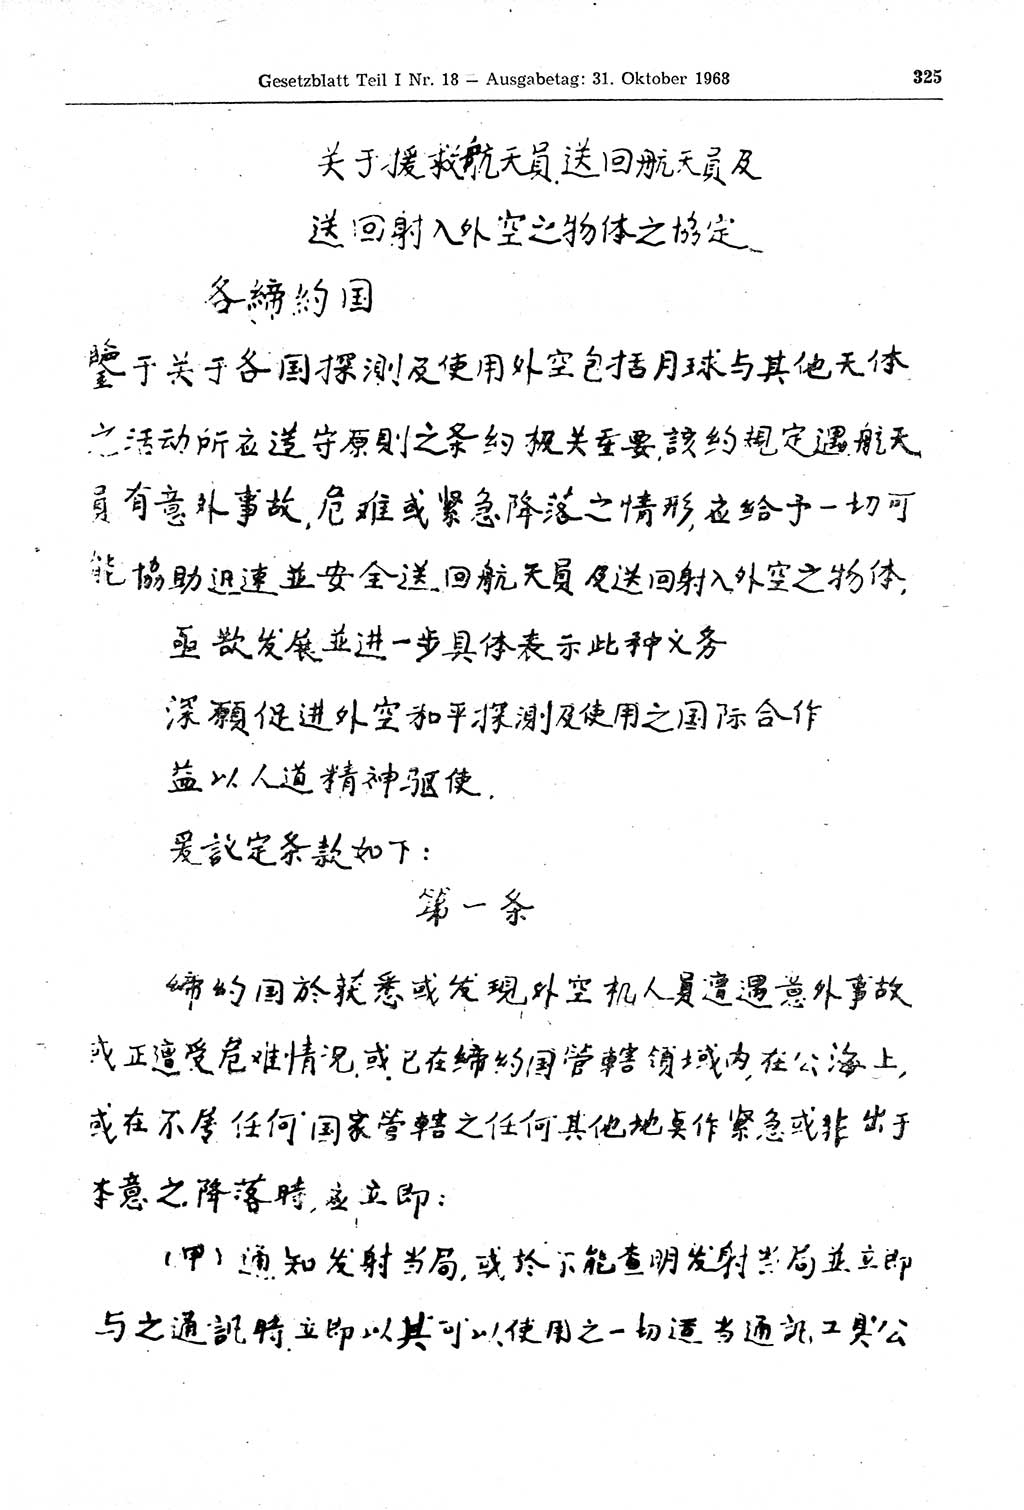 Gesetzblatt Teil I Nr. 18 — Ausgabetag: 31. Oktober 1968
325
关于援救航天員,送回航天員及
送回射入外空之物体之協定
各締約国
鑒于关于各国探測及使用外空包括月球与其他天体
之活动所应遵守原則之条約极关重要,該約規定遇航天
員有意外事故,危难或緊急降落之情形,应給予一切可
能協助迅速並安全送回航天員及送回射入外空之物体,
亟欲发展並进一步具体表示此种义务
深願促进外空和平探測及使用之国际合作
益以人道精神驱使,
爰議定条款如下:
第一条
締約国於获悉或发現外空机人員遭遇意外事故
或正遭受危难情况,或已在締約国管轄領域内,在公海上,
或在不屬任何国家管轄之任何其他地奌作緊急或非出于
本意之降落時,应立即:
(甲)通知发射当局,或於不能查明发射当局並立即
与之通訊時,立即以其可以使用之一切适当通訊工具公